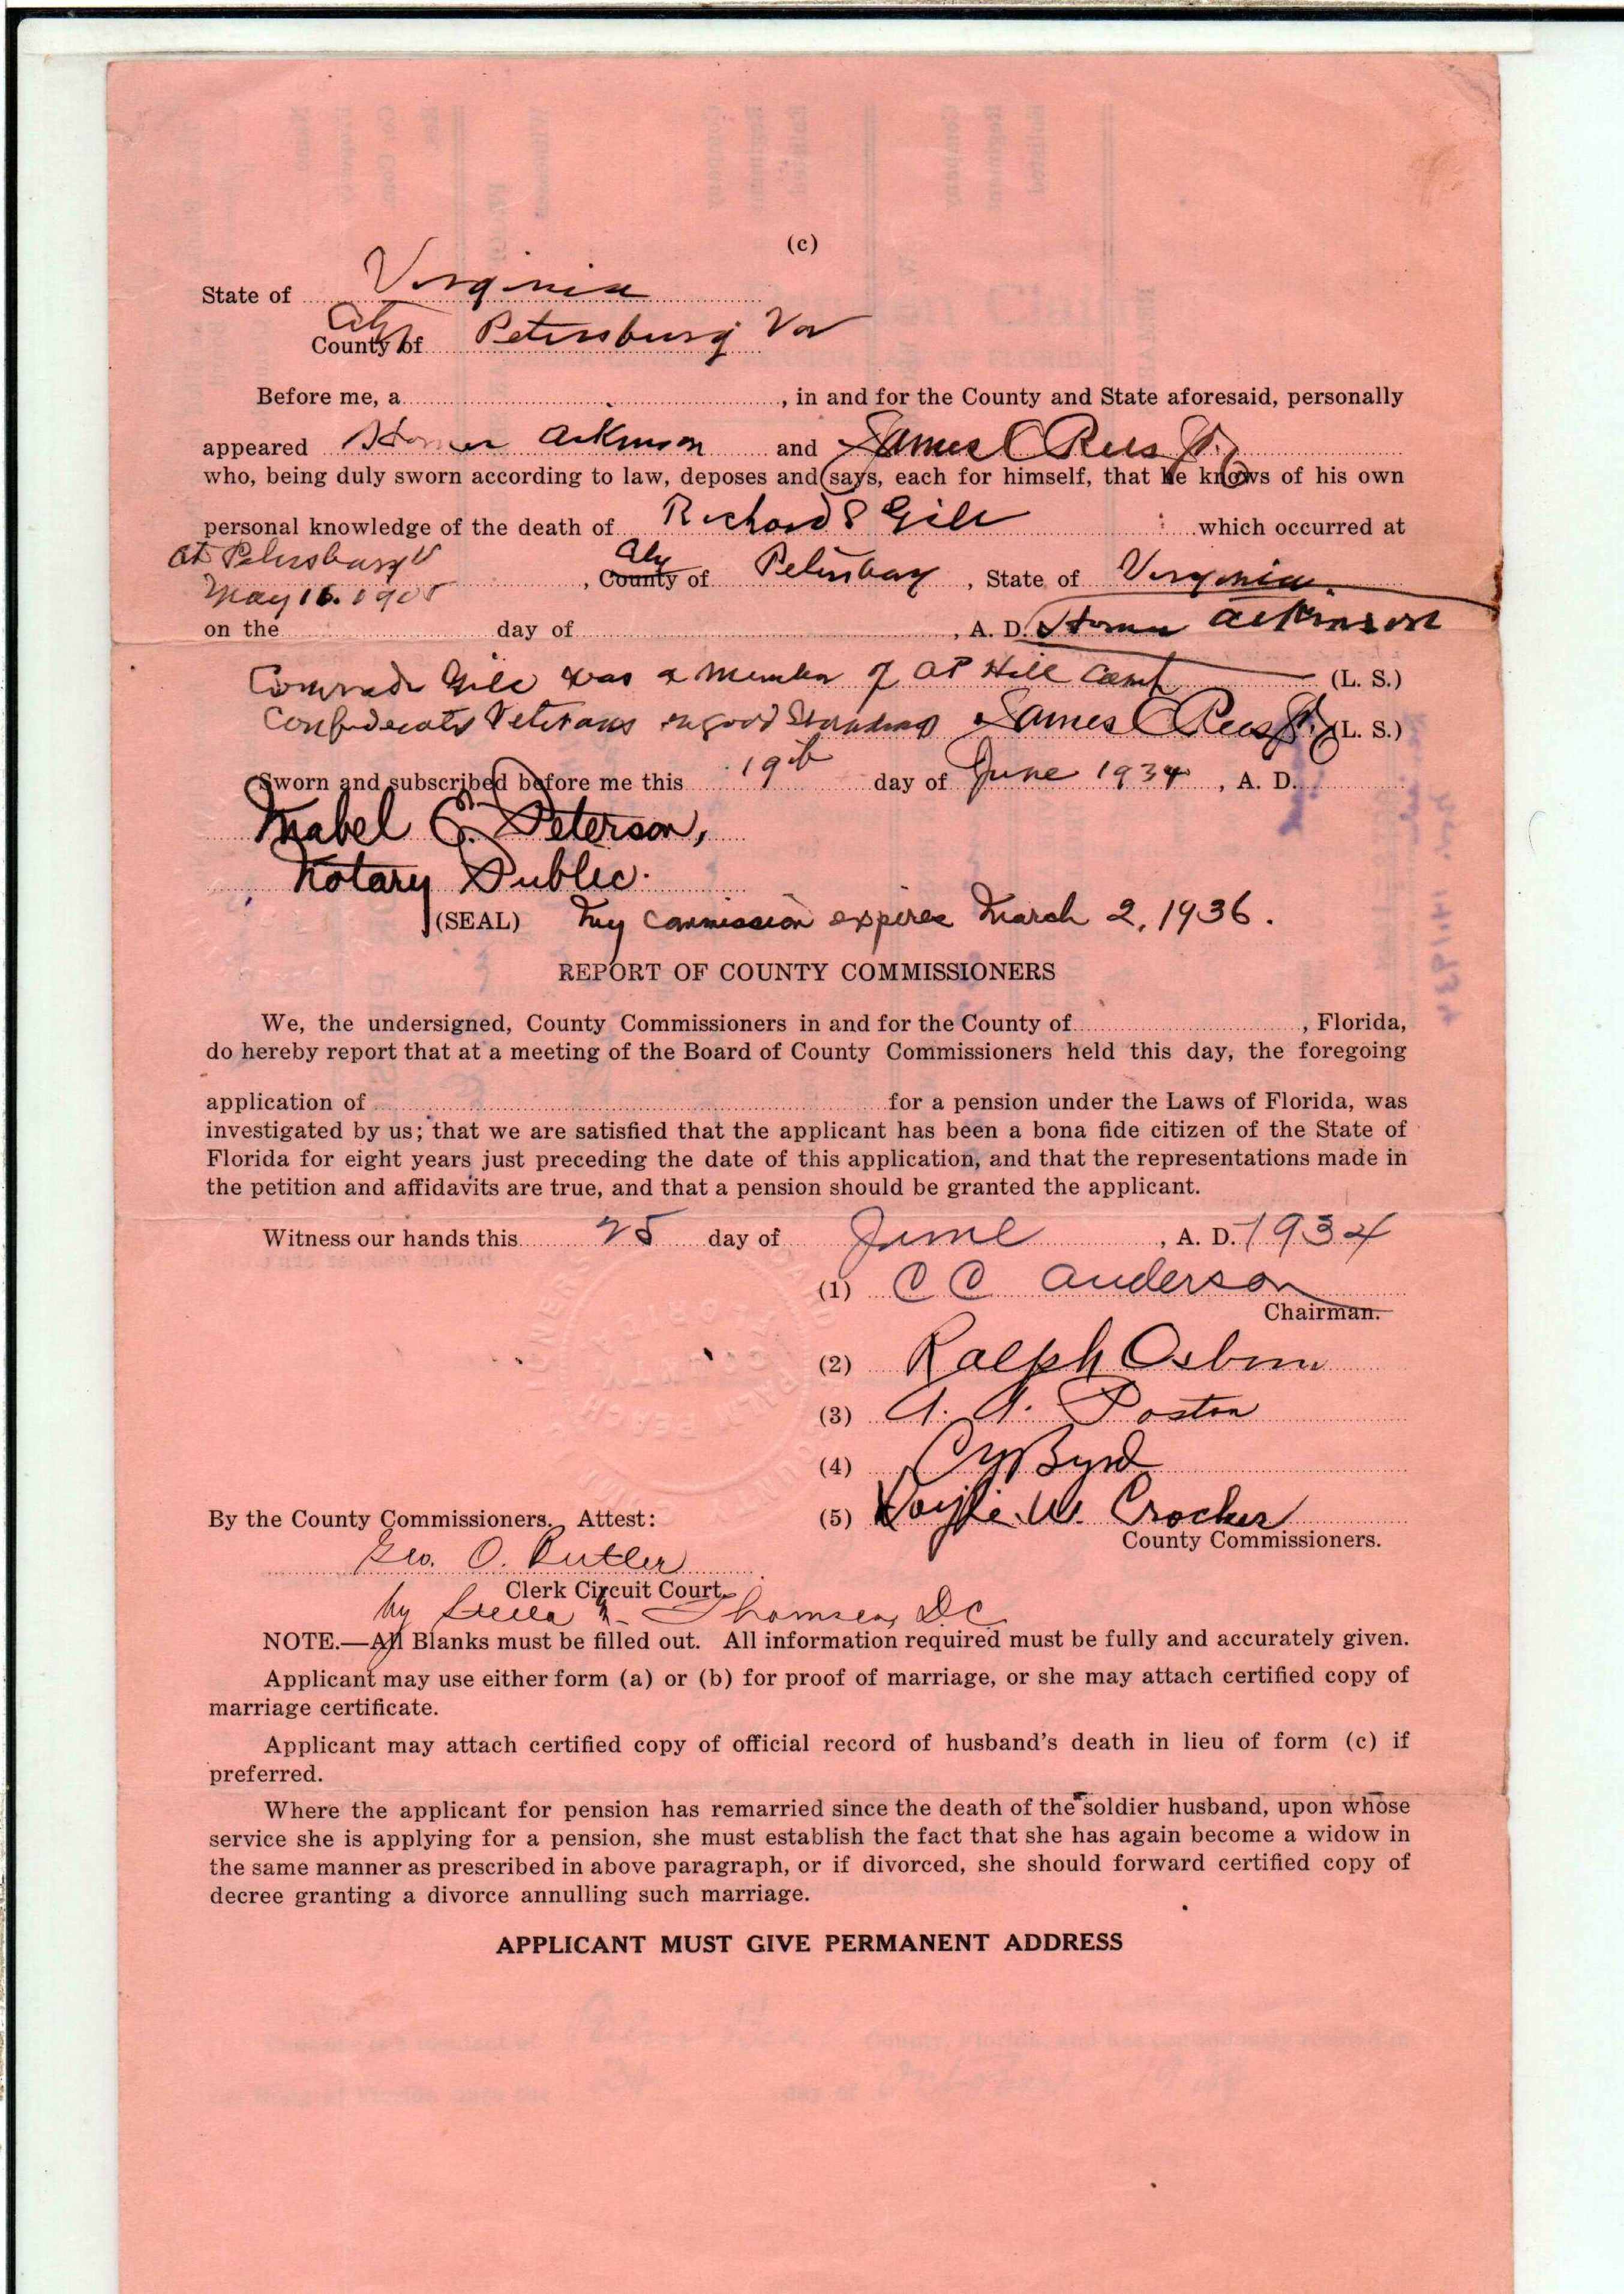 (c)
State of Virginia
City
County of Petersburg Va
Before me, a, in and for the County and State aforesaid, personally
appeared Homer Atkinson and James C Rees Jr.
who, being duly sworn according to law, deposes and says, each for himself, that he knows of his own
personal knowledge of the death of Richard S Gill which occurred at
at Petersburg V
City
, County of Petersburg, State of Virginia.
May 16. 1905
on the day of, A. D. Homer Atkinson
Comrade Gill was a member of AP Hill Camp (L. S.)
Confederate Veterans in good Standing James C Rees Jr. (L. S.)
Sworn and subscribed before me this 19th day of June 1934, A. D.
Mabel E. Peterson,
Notary Public.
(SEAL) My commission expires March 2, 1936.
REPORT OF COUNTY COMMISSIONERS
We, the undersigned, County Commissioners in and for the County of, Florida,
do hereby report that at a meeting of the Board of County Commissioners held this day, the foregoing
application of for a pension under the Laws of Florida, was
investigated by us; that we are satisfied that the applicant has been a bona fide citizen of the State of
Florida for eight years just preceding the date of this application, and that the representations made in
the petition and affidavits are true, and that a pension should be granted the applicant.
Witness our hands this 25 day of June, A. D. 1934
(1) C C Anderson
Chairman.
(2) Ralph Osborne
(3) A. A. Poston
(4) CY Byrd
(5) W. Crocker
County Commissioners.
By the County Commissioners. Attest:
Geo. O. Butler
Clerk Circuit Court.
by Thomsen, DC
NOTE.—All Blanks must be filled out. All information required must be fully and accurately given.
Applicant may use either form (a) or (b) for proof of marriage, or she may attach certified copy of
marriage certificate.
Applicant may attach certified copy of official record of husband's death in lieu of form (c) if
preferred.
Where the applicant for pension has remarried since the death of the soldier husband, upon whose
service she is applying for a pension, she must establish the fact that she has again become a widow in
the same manner as prescribed in above paragraph, or if divorced, she should forward certified copy of
decree granting a divorce annulling such marriage.
APPLICANT MUST GIVE PERMANENT ADDRESS